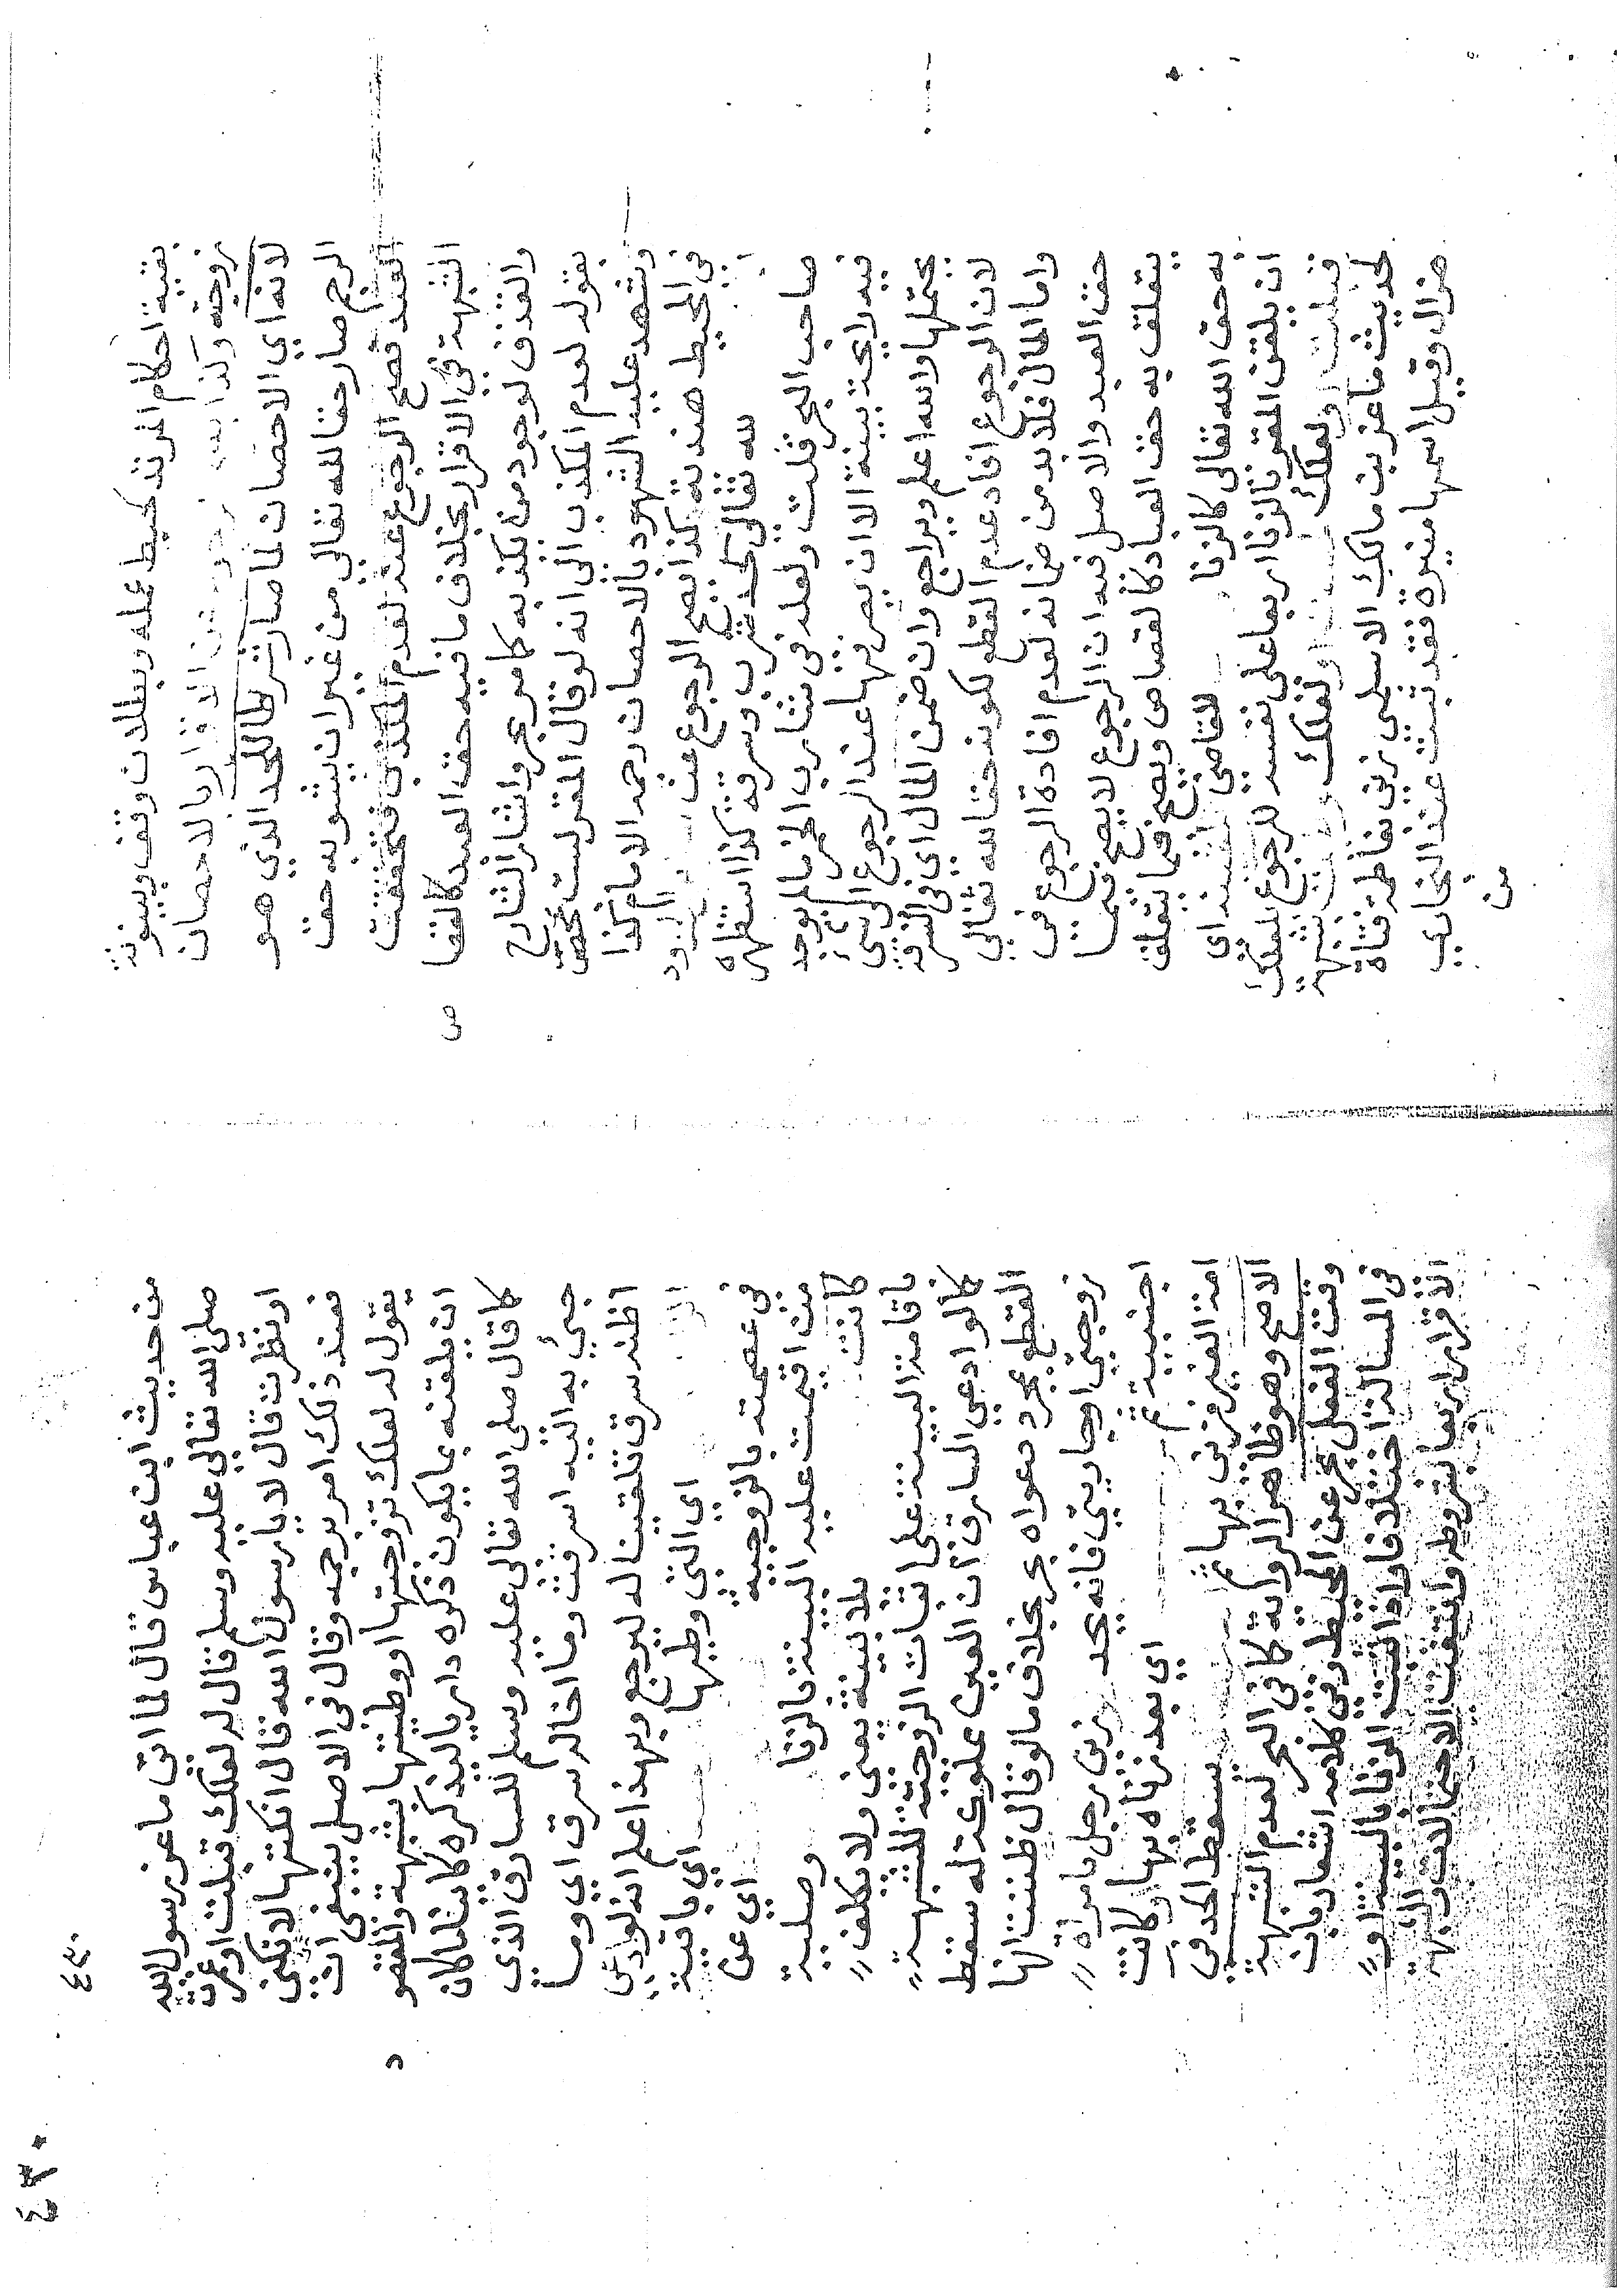 بقية احكام المرتد كحبط عمله وبطلان وقف وبينونة
زوجته وكذا يصح رجوعه عن الاقرار بالاحصان
لانه اي الاحصان لما صار شرطا للحد الذي هو
الرجم صار حقا لله تعالى من غير ان يشوبه حق
العبد فصح الرجوع عنه لعدم المكذب فتحققت
الشبهة في الاقرار بخلاف ما فيه حق العبد كالقصا
ص
والقذف لوجود من يكذبه كما مر بحر واشار الشارح
بقوله لعدم المكذب الى انه لو قال المقر لست بمحصن
وشهد عليه الشهود بالاحصان رجمه الامام كذا
في المحيط هندية كذا يصح الرجوع عن
لله تعالى كحد شرب وسرقة كذا استظهره
صاحب البحر قلت ولعله في شارب الخمر ما لم يوجد
فيه رايحة بينة الا ان يصرفها عند الرجوع الى شيء
يحتملها والله اعلم ويراجع وان ضمن المال اي في السرقة
لان الرجوع افاد عدم القطع لكونه حقا لله تعالى
واما المال فلا بد من ضمانه لعدم افادة الرجوع في
حق العبد والاصل فيه ان الرجوع لا يصح فيما
يتعلق به حق العباد كالقصاص ويصح فيما تعلق
به حق الله تعالى كالزنا للقاضي اي
ان يلقن المقر بالزنا اربعا على نفسه للرجوع لعلك
قبلت او لعلك
لحديث ماعز بن مالك الاسلمي زنى بفاطمة فتاة
هزال وقيل اسمها منيرة فقد ثبت عند البخاري
من
٤٣٠
من حديث ابن عباس قال لما اتى ماعز رسول الله
صلى الله تعالى عليه وسلم قال له لعلك قبلت او غمزت
او نظرت قال لا يا رسول الله قال انكتها لا تكني
فعند ذلك امر برجمه وقال في الاصل ينبغي ان
يقول له لعلك تزوجتها او وطئتها بشبهة والمقصو
د
ان يلقنه بما يكون ذكره داريا ليذكره كاينا ما كان
كما قال صلى الله تعالى عليه وسلم للسارق الذي
جئ به اليه اسرقت وما اخاله سرق اي وما
اظنه سرق تلقينا له ليرجع وبهذا علم انه لو ادعى
اي التي وطيها اي باقية
في عصمته بالزوجية اي عن
من اقيمت عليه البينة بالزنا وصلية
كانت بلا بينة يعني ولا يكلف
باقامة البينة على اثبات الزوجية للشبهة
كما لو ادعى السارق ان العين مملوكة له سقط
القطع بمجرد دعواه بحر بخلاف ما لو قال ظننت انها
زوجتي او جاريتي فانه يحد زنى رجل بامراة
اجنبية ثم اي بعد زناه بها وكانت
امة الغير فزنى بها ثم يسقط الحد في
الاصح وهو ظاهر الرواية كما في البحر لعدم الشبهة
وقت الفعل بحر عن المحيط وفي كلامه اشعار بان
في المسالة اختلافا واذا ثبت الزنا بالبينة ولو
الاقرار اربعا بشروطه وانتفت الاحتمالات الشبهة